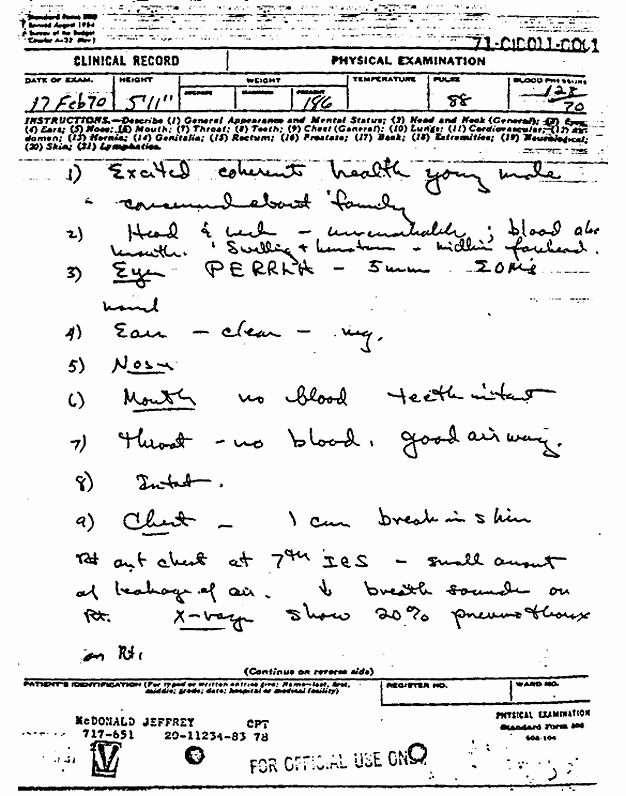 Standard Form 88
Revised August 1954
Bureau of the Budget
Circular A-32 (Rev)
71-CID011-COL1
CLINICAL RECORD PHYSICAL EXAMINATION
DATE OF EXAM. HEIGHT WEIGHT TEMPERATURE PULSE BLOOD PRESSURE
PRESENT
17 Feb 70 5'11" 186 88 70
INSTRUCTIONS.—Describe (1) General Appearance and Mental Status; (2) Head and Neck (General); (3) Eyes;
(4) Ears; (5) Nose; (6) Mouth; (7) Throat; (8) Teeth; (9) Chest (General); (10) Lungs; (11) Cardiovascular; (12) Ab-
domen; (13) Hernia; (14) Genitalia; (15) Rectum; (16) Prostate; (17) Back; (18) Extremities; (19) Neurological;
(20) Skin; (21) Lymphatics.
1) Excited coherent health young male
concerned about family
2) Head & neck - unremarkable ; blood abt
mouth. Swelling + - midline forehead.
3) Eyes PERRLA - 5mm EOMs
4) Ears - clear - neg.
5) Nose
6) Mouth no blood teeth intact
7) Throat - no blood. good airway.
8) Intact.
9) Chest - 1 cm break in skin
Rt ant chest at 7th ICS - small amount
of leakage of air. ↓ breath sounds on
Rt. X-rays show 20% pneumothorax
on Rt.
(Continue on reverse side)
PATIENT'S IDENTIFICATION (For typed or written entries give: Name—last, first,
middle; grade; date; hospital or medical facility)
REGISTER NO. WARD NO.
McDONALD JEFFREY CPT
717-651 20-11234-83 78
PHYSICAL EXAMINATION
Standard Form
FOR OFFICIAL USE ONLY